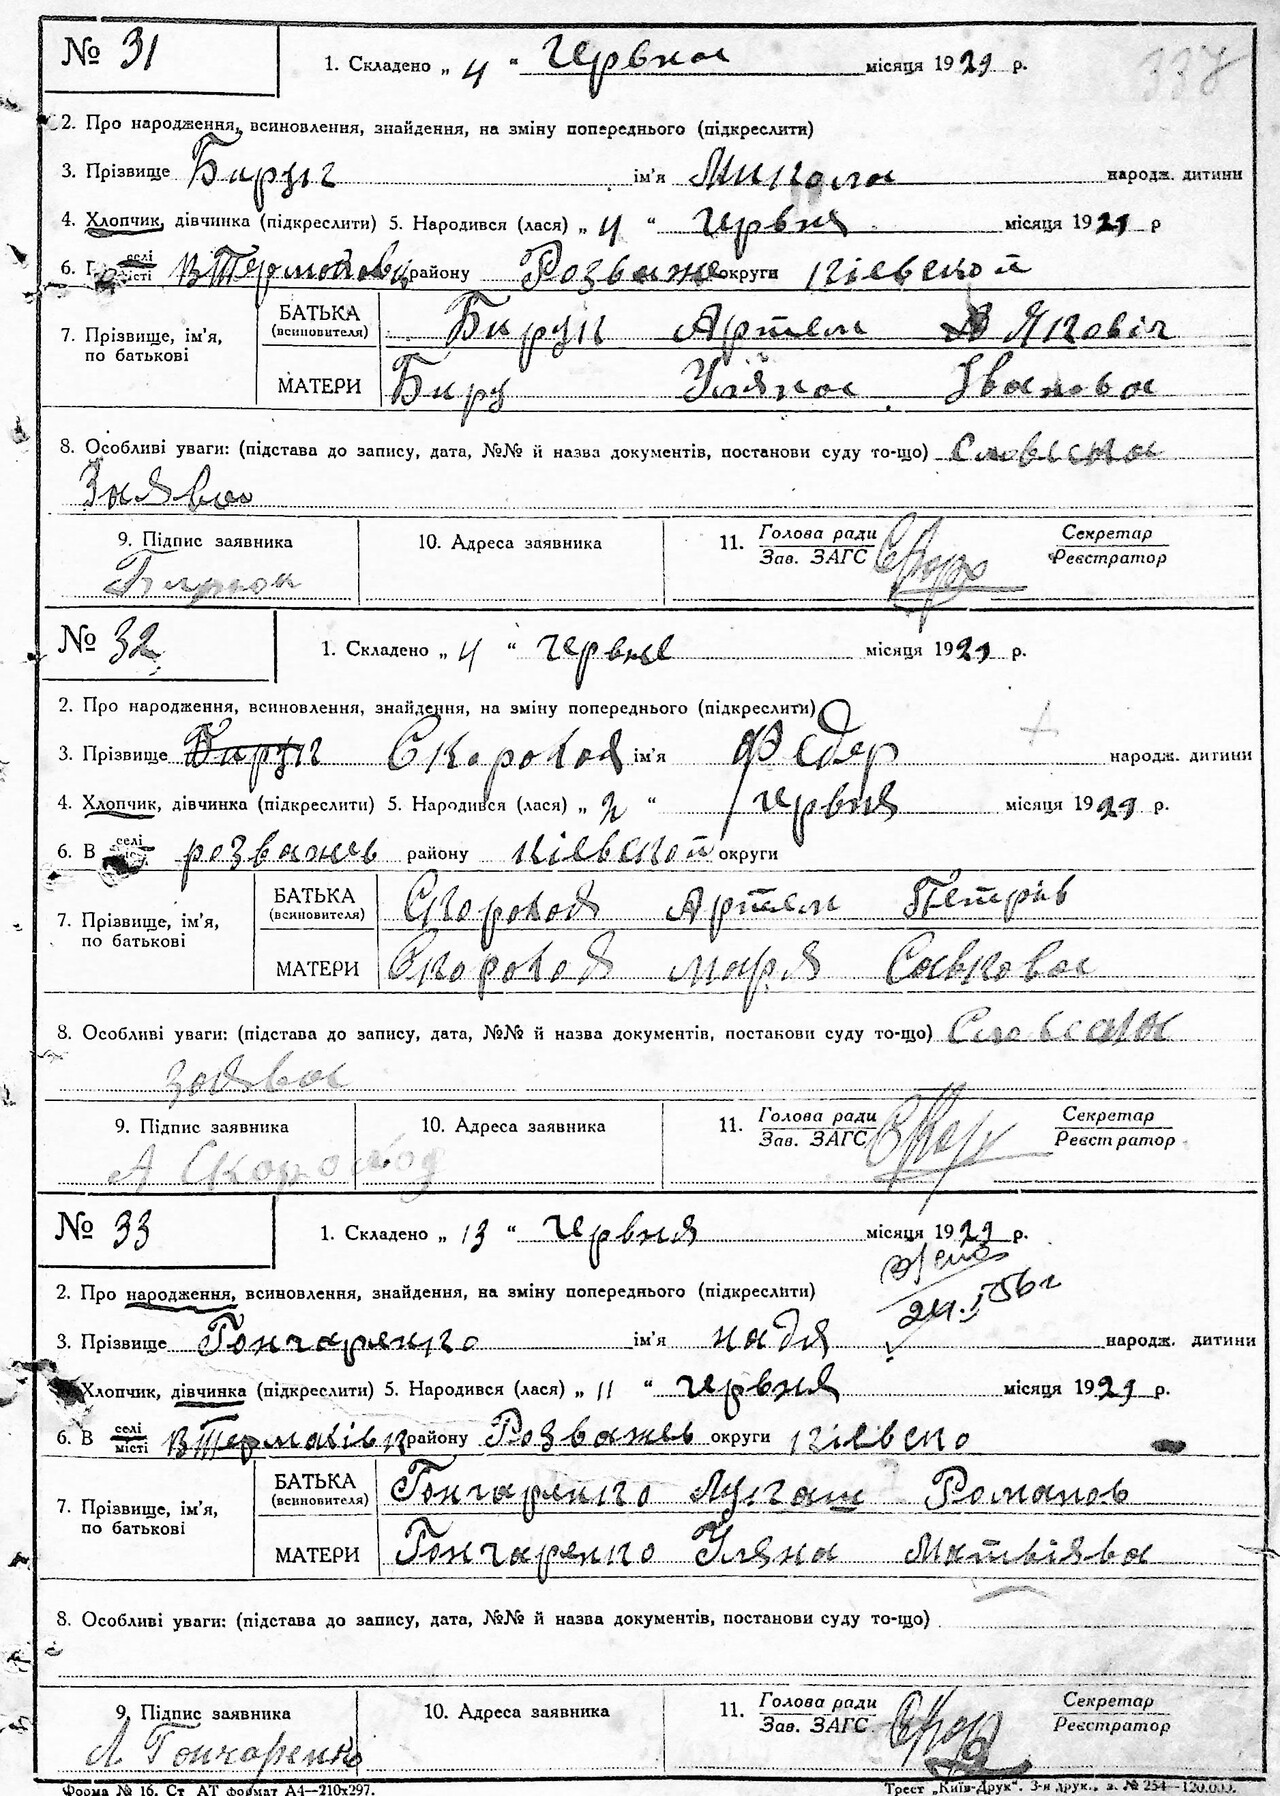 № 31
1. Складено „ 4 “ червня місяця 1929 р.
337
2. Про народження, всиновлення, знайдення, на зміну попереднього (підкреслити)
3. Прізвище Бирук ім'я Микола народж. дитини
4. Хлопчик, дівчинка (підкреслити) 5. Народився (лася) „ 4 “ червня місяця 1929 р
6. селі місті району Розваже округи Кіевской
7. Прізвище, ім'я, по батькові
БАТЬКА (всиновителя) Бирук Артем Якович
МАТЕРИ Биру Уляна Іванова
8. Особливі уваги: (підстава до запису, дата, №№ й назва документів, постанови суду то-що) Словесна
Заява
9. Підпис заявника
10. Адреса заявника
11. Голова ради Зав. ЗАГС
Секретар Реєстратор
№ 32
1. Складено „ 4 “ червня місяця 1929 р.
2. Про народження, всиновлення, знайдення, на зміну попереднього (підкреслити)
3. Прізвище Бирук Скороход ім'я Федер народж. дитини
4. Хлопчик, дівчинка (підкреслити) 5. Народився (лася) „ 2 “ червня місяця 1929 р.
6. В селі розважев району Кіевской округи
7. Прізвище, ім'я, по батькові
БАТЬКА (всиновителя) Скороход Артем Петрів
МАТЕРИ Скороход Маря Савкова
8. Особливі уваги: (підстава до запису, дата, №№ й назва документів, постакови суду то-що) Словесна
заява
9. Підпис заявника
10. Адреса заявника
11. Голова ради Зав. ЗАГС
Секретар Реєстратор
А Скороход
№ 33
1. Складено „ 13 “ червня місяця 1929 р.
2. Про народження, всиновлення, знайдення, на зміну попереднього (підкреслити)
24.I 56 г
3. Прізвище Гончаренко ім'я надя народж. дитини
Хлопчик, дівчинка (підкреслити) 5. Народився (лася) „ 11 “ червня місяця 1929 р.
6. В селі місті В Термахівк району Розважев округи Кіевско
7. Прізвище, ім'я, по батькові
БАТЬКА (всиновителя) Гончаренко Романов
МАТЕРИ Гончаренко Уляна Матвіява
8. Особливі уваги: (підстава до запису, дата, №№ й назва документів, постанови суду то-що)
9. Підпис заявника
10. Адреса заявника
11. Голова ради Зав. ЗАГС
Секретар Реєстратор
Л Гончаренко
Форма № 16. Ст АТ формат А4—210х297.
Трест „Київ-Друк“. 3-я друк., з. № 254—120.000.